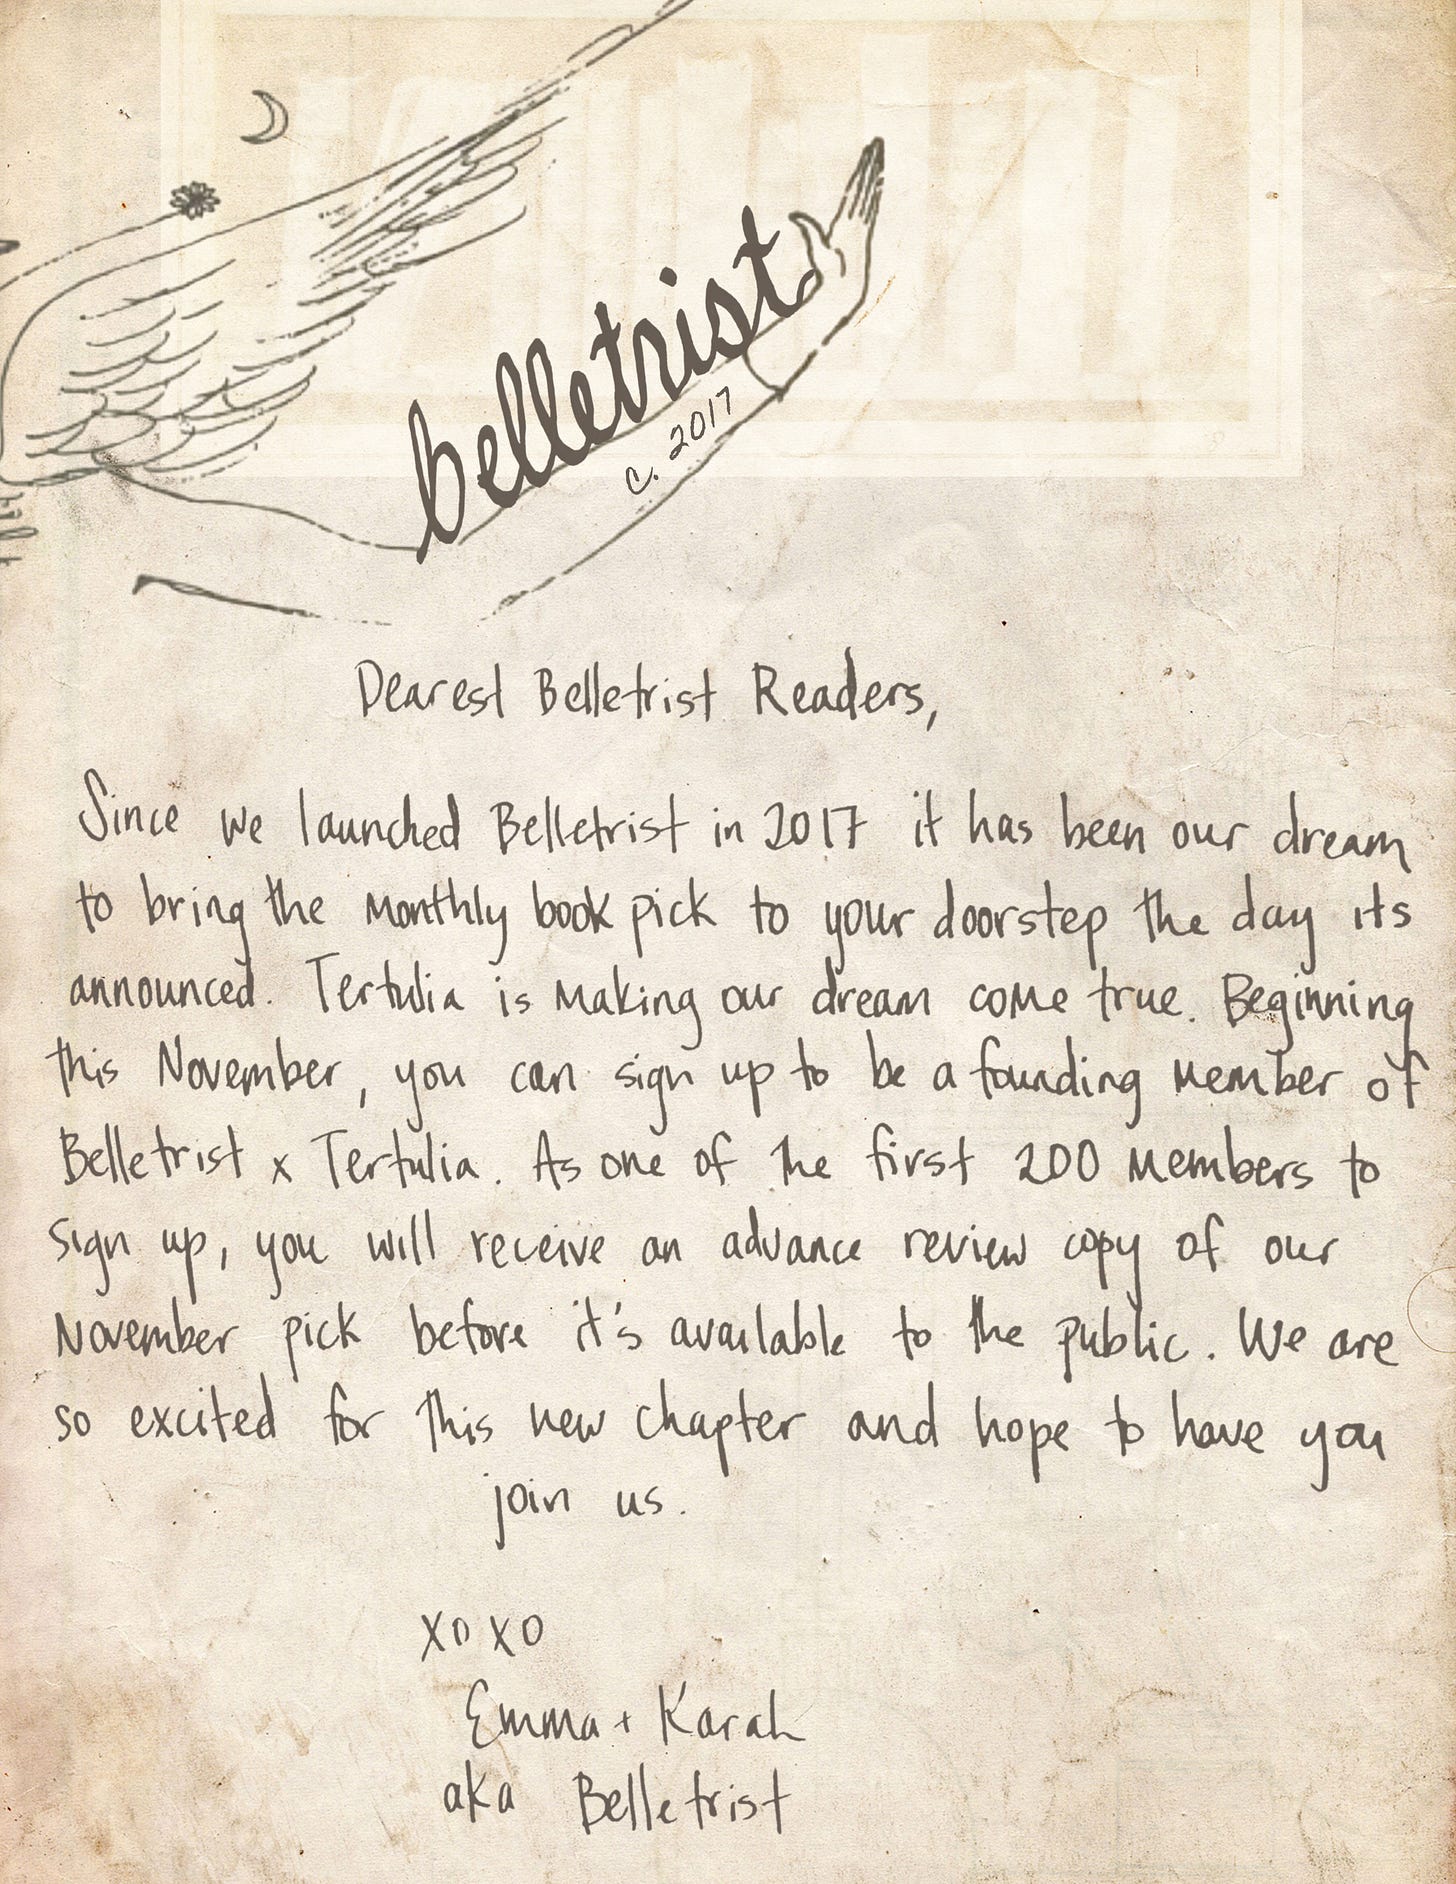 belletrist
c. 2017
Dearest Belletrist Readers,
Since we launched Belletrist in 2017 it has been our dream
to bring the monthly book pick to your doorstep the day its
announced. Tertulia is making our dream come true. Beginning
this November, you can sign up to be a founding member of
Belletrist x Tertulia. As one of the first 200 members to
sign up, you will receive an advance review copy of our
November pick before it's available to the public. We are
so excited for this new chapter and hope to have you
join us.
xoxo
Emma + Karah
aka Belletrist